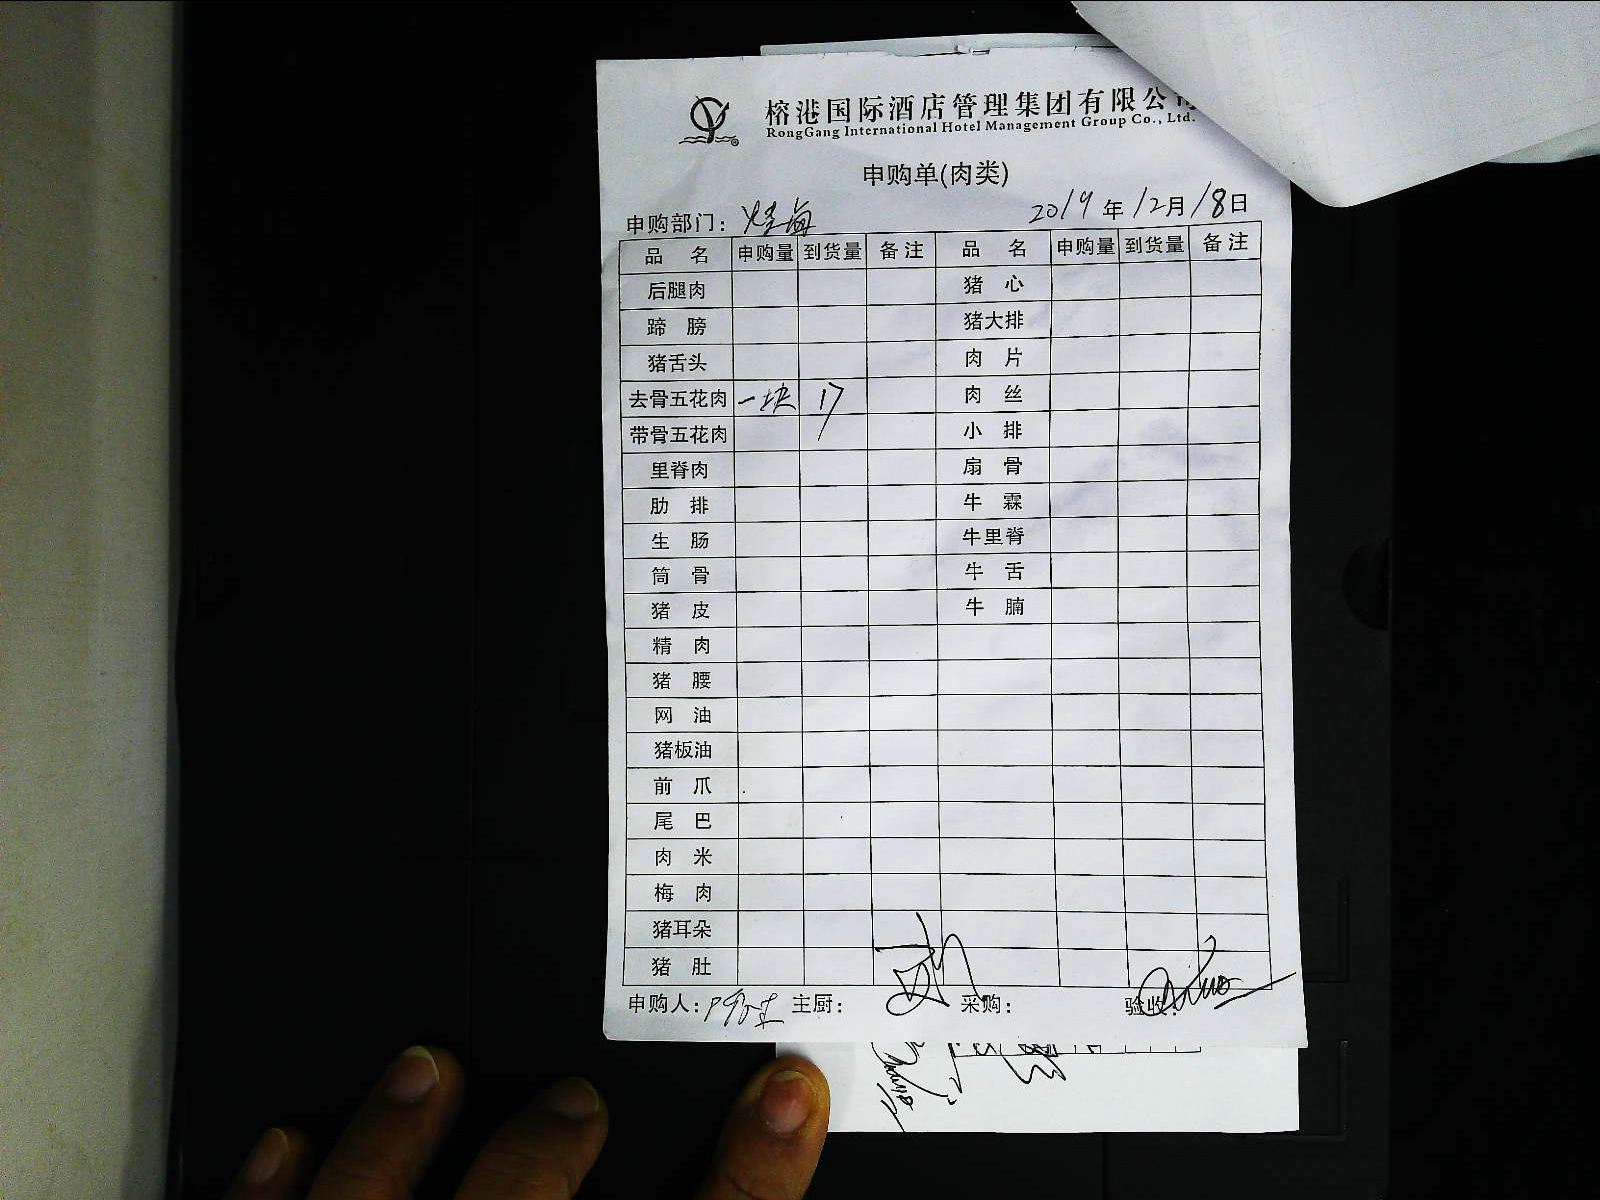 榕港国际酒店管理集团有限公司
RongGang International Hotel Management Group Co., Ltd.
申购单(肉类)
申购部门：
2019年12月18日
品 名 申购量 到货量 备注 品 名 申购量 到货量 备注
后腿肉 猪 心
蹄 膀 猪大排
猪舌头 肉 片
去骨五花肉 一块 17 肉 丝
带骨五花肉 小 排
里脊肉 扇 骨
肋 排 牛 霖
生 肠 牛里脊
筒 骨 牛 舌
猪 皮 牛 腩
精 肉
猪 腰
网 油
猪板油
前 爪
尾 巴
肉 米
梅 肉
猪耳朵
猪 肚
申购人： 主厨： 采购： 验收：